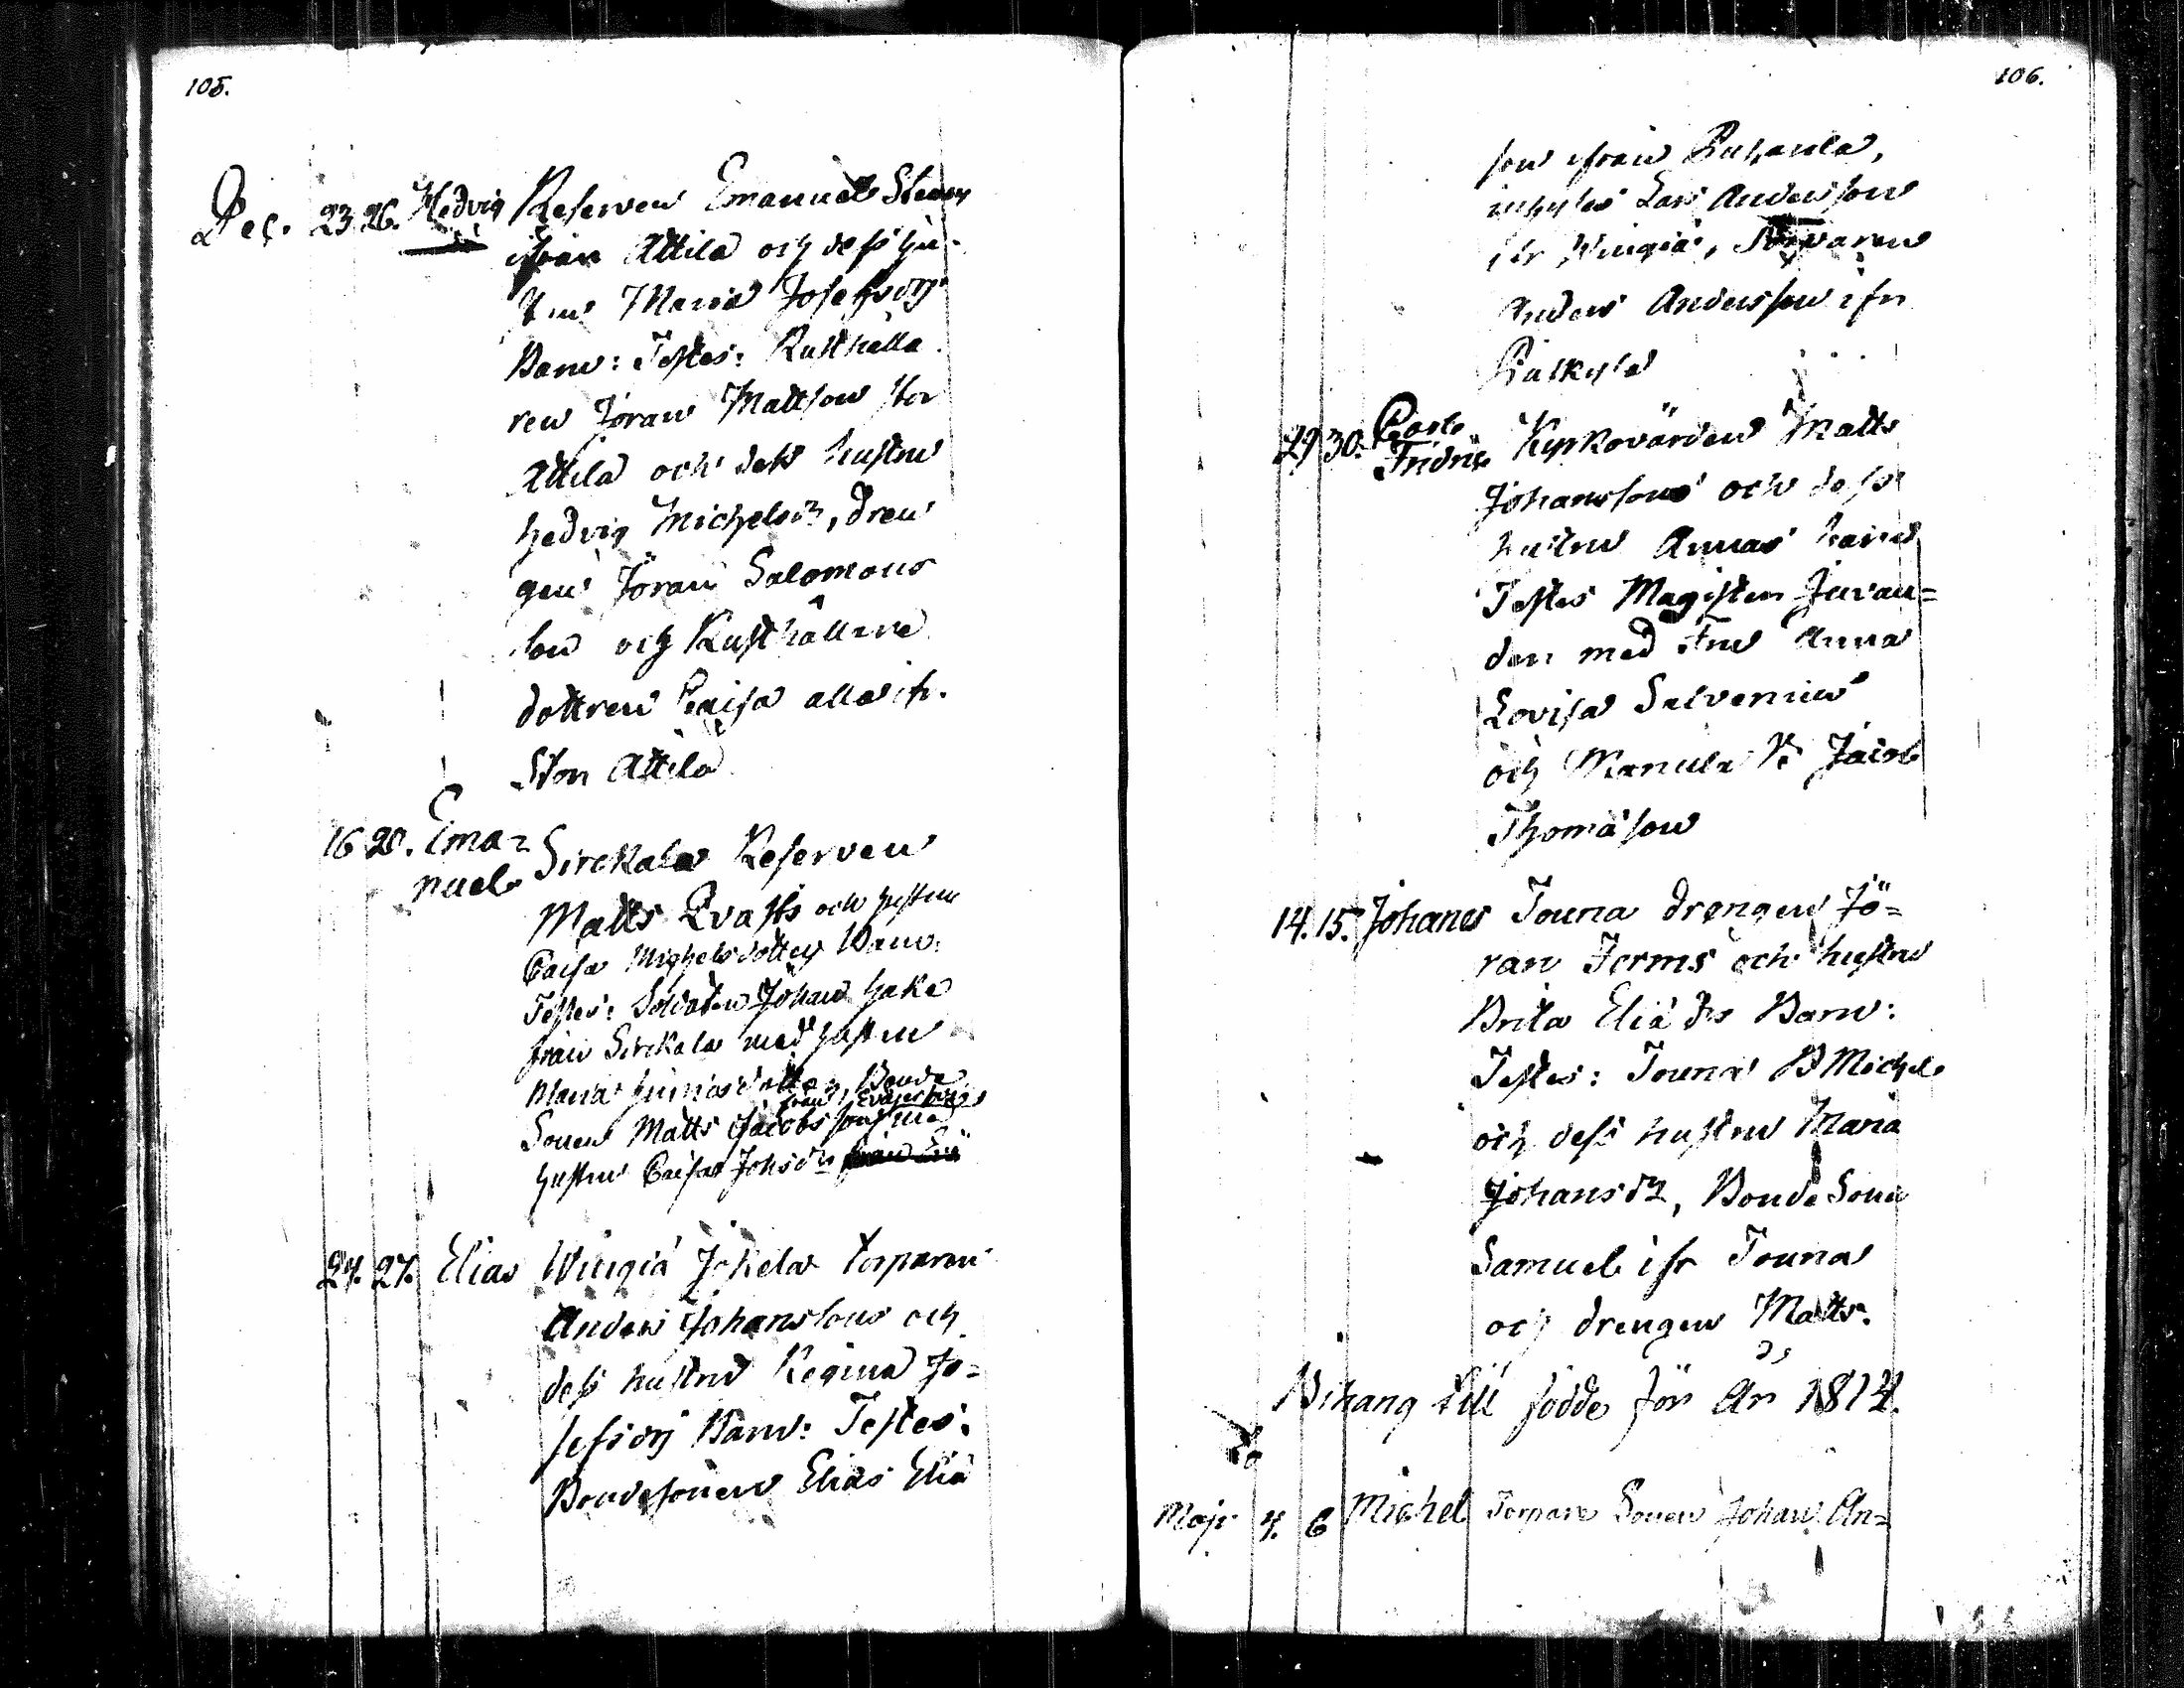 105.
Dec. 23 26. Hedvig Reserven Emanuel
ifrån Attila och dess hu-
Maria Josephsdr
Barn: Testes: Rusthålla
ren Jöran Mattson Stor
Attila och dess hustru
Hedvig Michelsdr, dren
gen Jöran Salomons
son och Rusthållare
dottren Caisa alla ifr.
Stor Attila
16 20. Ema=
nuel Sirckala Reserven
Matts Qvast och hustru
Caisa Michelsdotters Barn.
Testes: Soldaten Johan Hake
från Sirckala med hustru
Maria dotter, Bonde
från
Sonen Matts Jacobsson med
hustru Caisa Johsdr från
24. 27. Elias Wingiä Jokela torparen
Anders Johansson och
dess hustru Regina Jo=
sefsdrs Barn: Testes:
Bondesonen Elias Eliä
106.
son ifrån
inhyses Lars Andersson
ifr Wingiä, Torparen
Anders Andersson ifrn
29 30. Carl
Fridric Kyrkovärden Matts
Johanssons och dess
hustru Annas barn
Testes Magister
den med Fru Anna
Lovisa Salvenius
och Jacob
Thomäson
14. 15. Johanes Touna drengen Jö=
ran Jerms och hustru
Brita Eliä drs Barn:
Testes: Touna B Michel
och dess hustru Maria
Johansdr, Bonde Sonen
Samuel ifr Touna
och drengen Matts.
Bihang till födde för År 1814.
Maji 4. 6 Michel Torpare Sonen Johan An=